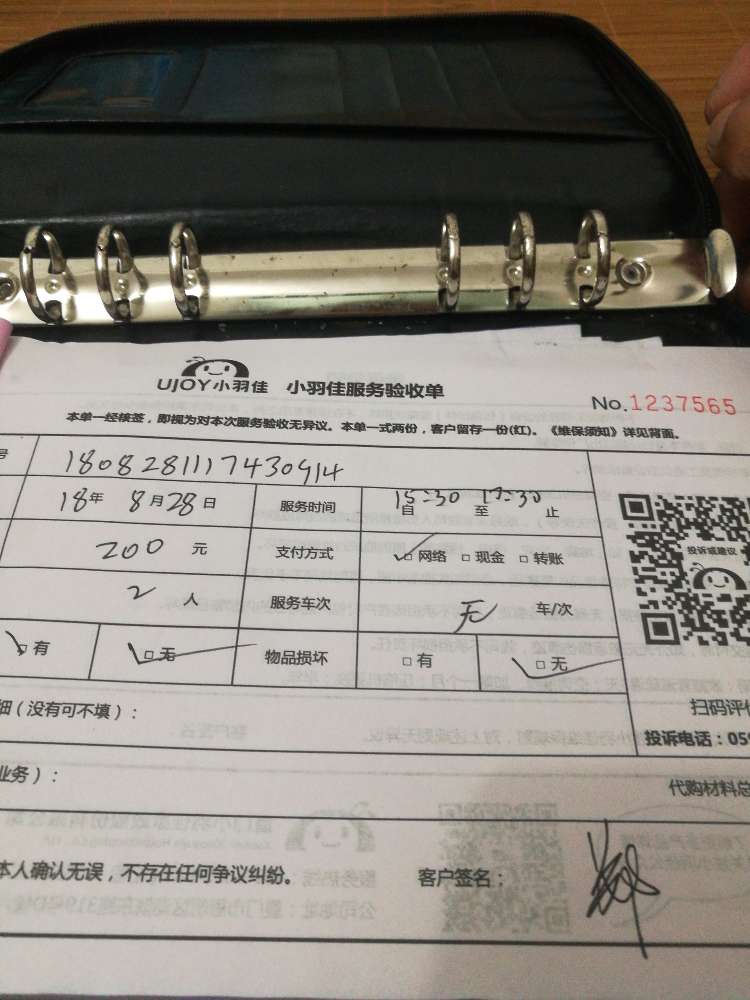 UJOY小羽佳 小羽佳服务验收单
No.1237565
本单一经核签，即视为对本次服务验收无异议。本单一式两份，客户留存一份(红)。《维保须知》详见背面。
号 18082811117430914
18年 8月28日 服务时间 15:30 17:30
自 至 止
200 元 支付方式 □网络 □现金 □转账
投诉或建议
2 人 服务车次 无 车/次
□有 □无 物品损坏 □有 □无
细（没有可不填）：
扫码评价
投诉电话：059
业务）：
代购材料总
本人确认无误，不存在任何争议纠纷。 客户签名：